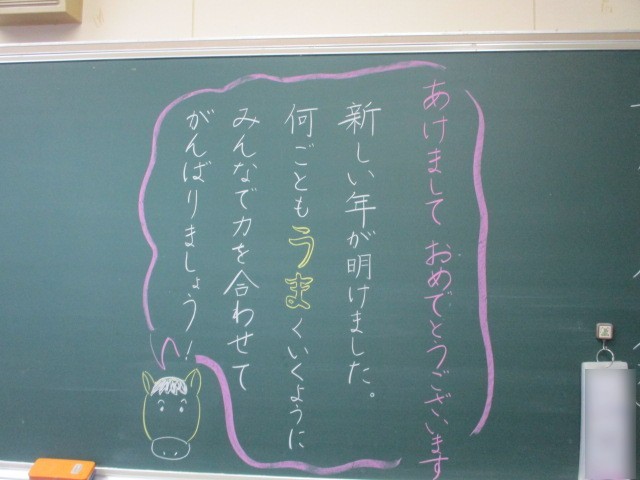 あけまして おめでとうございます
新しい年が明けました。
何ごともうまくいくように
みんなで力を合わせて
がんばりましょう!